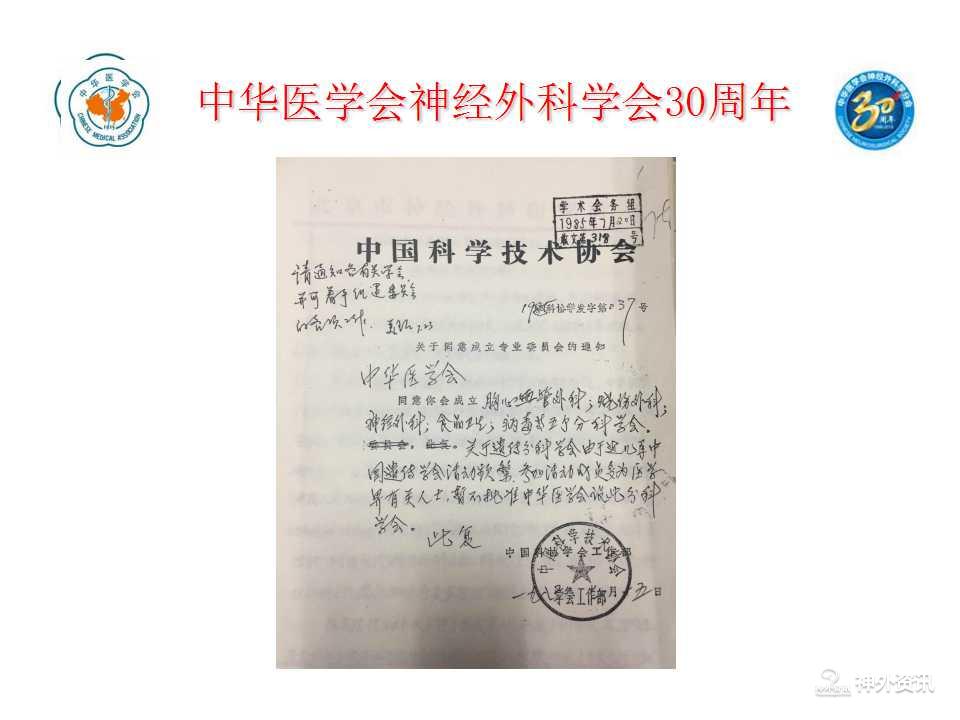 中华医学会
CHINESE MEDICAL ASSOCIATION
1915
中华医学会神经外科学会30周年
中华医学会神经外科学分会
30
周年
CHINESE NEUROSURGICAL SOCIETY
学术会务组
1985年7月20日
收文第318号
中国科学技术协会
请通知各有关学会,
并可着手组建委员会
的各项工作.
科协学发字第037号
关于同意成立专业委员会的通知
中华医学会
同意你会成立胸心血管外科;烧伤外科;
神经外科;食品卫生;病毒等五个分科学会。
委员会。此复。关于遗传分科学会由于近几年中
国遗传学会活动频繁,参加活动成员多为医学
界有关人士,暂不批准中华医学会设此分科
学会。
此复
中国科协学会工作部
中国科学技术协会
学会工作部
一九八 年 月十五日
神外资讯